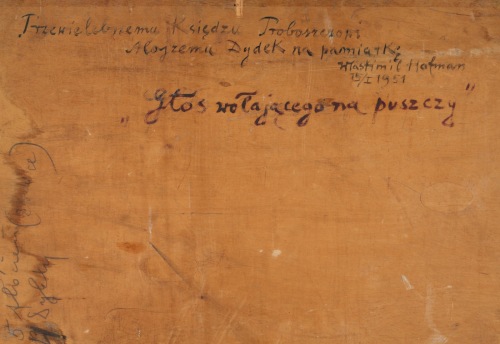 Przewielebnemu Księdzu Proboszczopi
Alojzemu Dydek na pamiątkę
Wlastimil Hofman
15/I 1951
„Głos wołającego na puszczy"